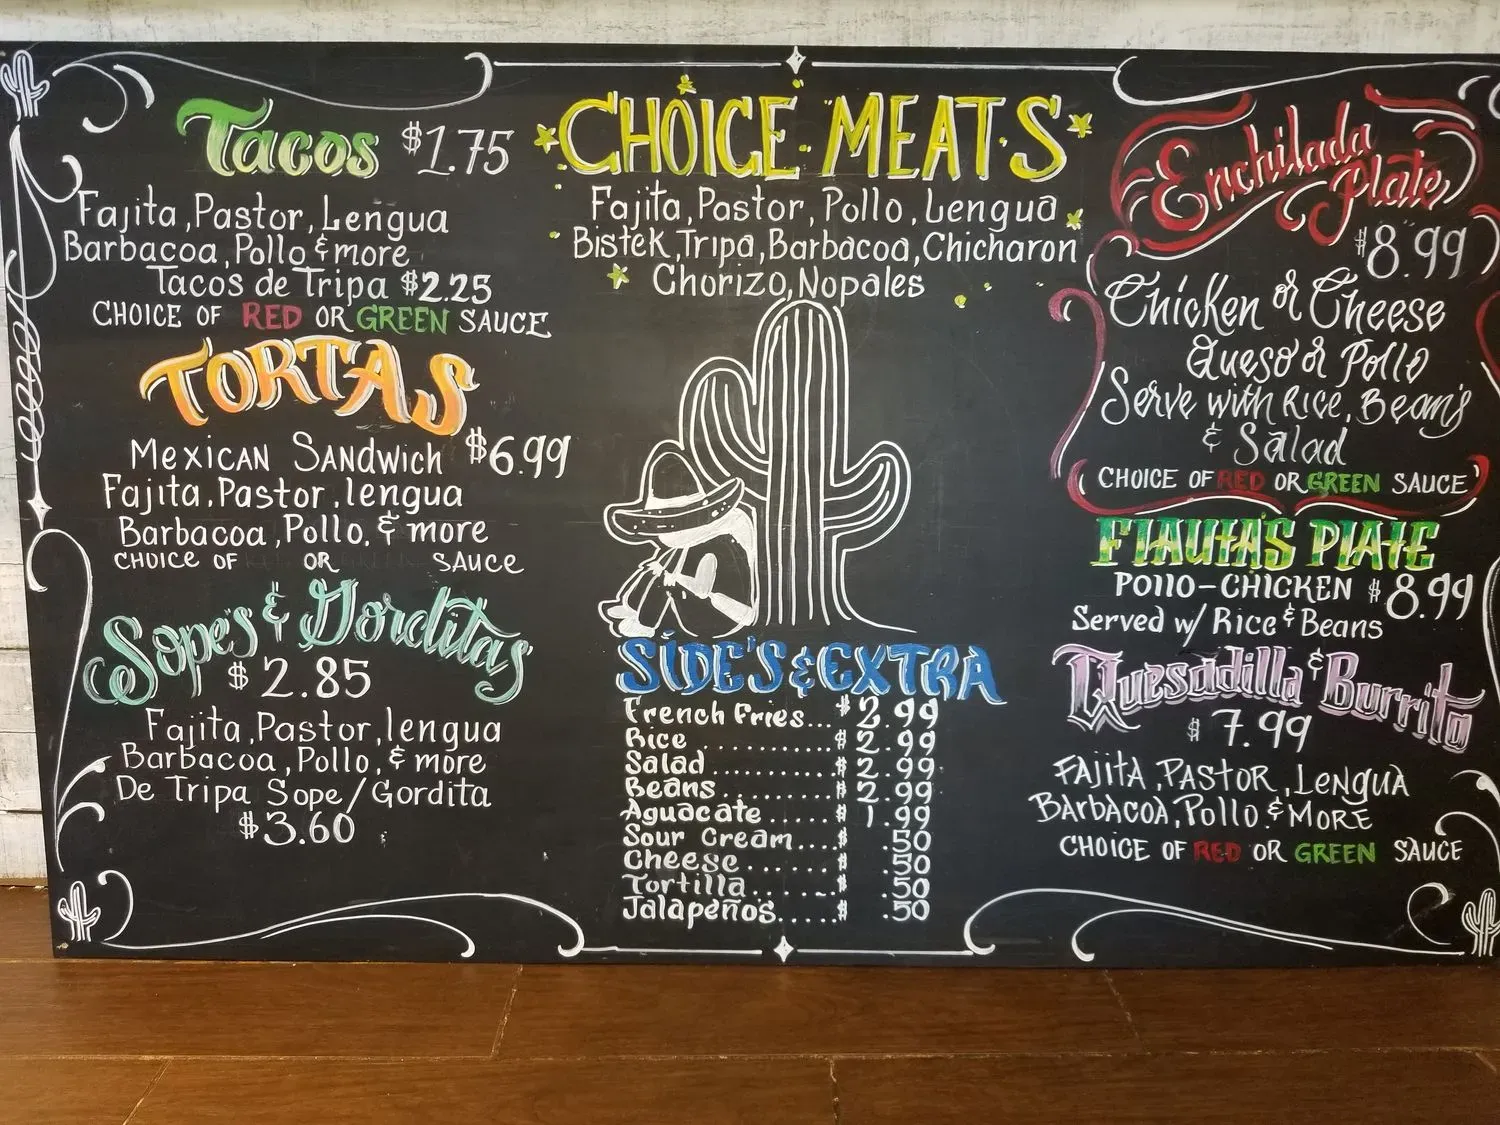 Tacos $1.75
Fajita, Pastor, Lengua
Barbacoa, Pollo & more
Tacos de Tripa $2.25
CHOICE OF RED OR GREEN SAUCE
TORTAS
MEXICAN SANDWICH $6.99
Fajita, Pastor, lengua
Barbacoa, Pollo, & more
CHOICE OF OR SAUCE
Sope's & Gorditas
$2.85
Fajita, Pastor, lengua
Barbacoa, Pollo, & more
De Tripa Sope/Gordita
$3.60
CHOICE MEATS
Fajita, Pastor, Pollo, Lengua
Bistek, Tripa, Barbacoa, Chicharon,
Chorizo, Nopales
SIDE'S & EXTRA
French Fries... $2.99
Rice .......... $2.99
Salad.......... $2.99
Beans ......... $2.99
Aguacate ...... $1.99
Sour Cream.... $ .50
Cheese ....... $ .50
Tortilla....... $ .50
Jalapeños..... $ .50
Enchilada
Plate
$8.99
Chicken or Cheese
Queso or Pollo
Serve with Rice, Bean's
& Salad
CHOICE OF RED OR GREEN SAUCE
FlAUtA'S PlAtE
Pollo-CHICKEN $8.99
Served w/ Rice & Beans
Quesadilla & Burrito
$7.99
FAJITA, PASTOR, LENGUA
BARBACOA, Pollo & MORE
CHOICE OF RED OR GREEN SAUCE